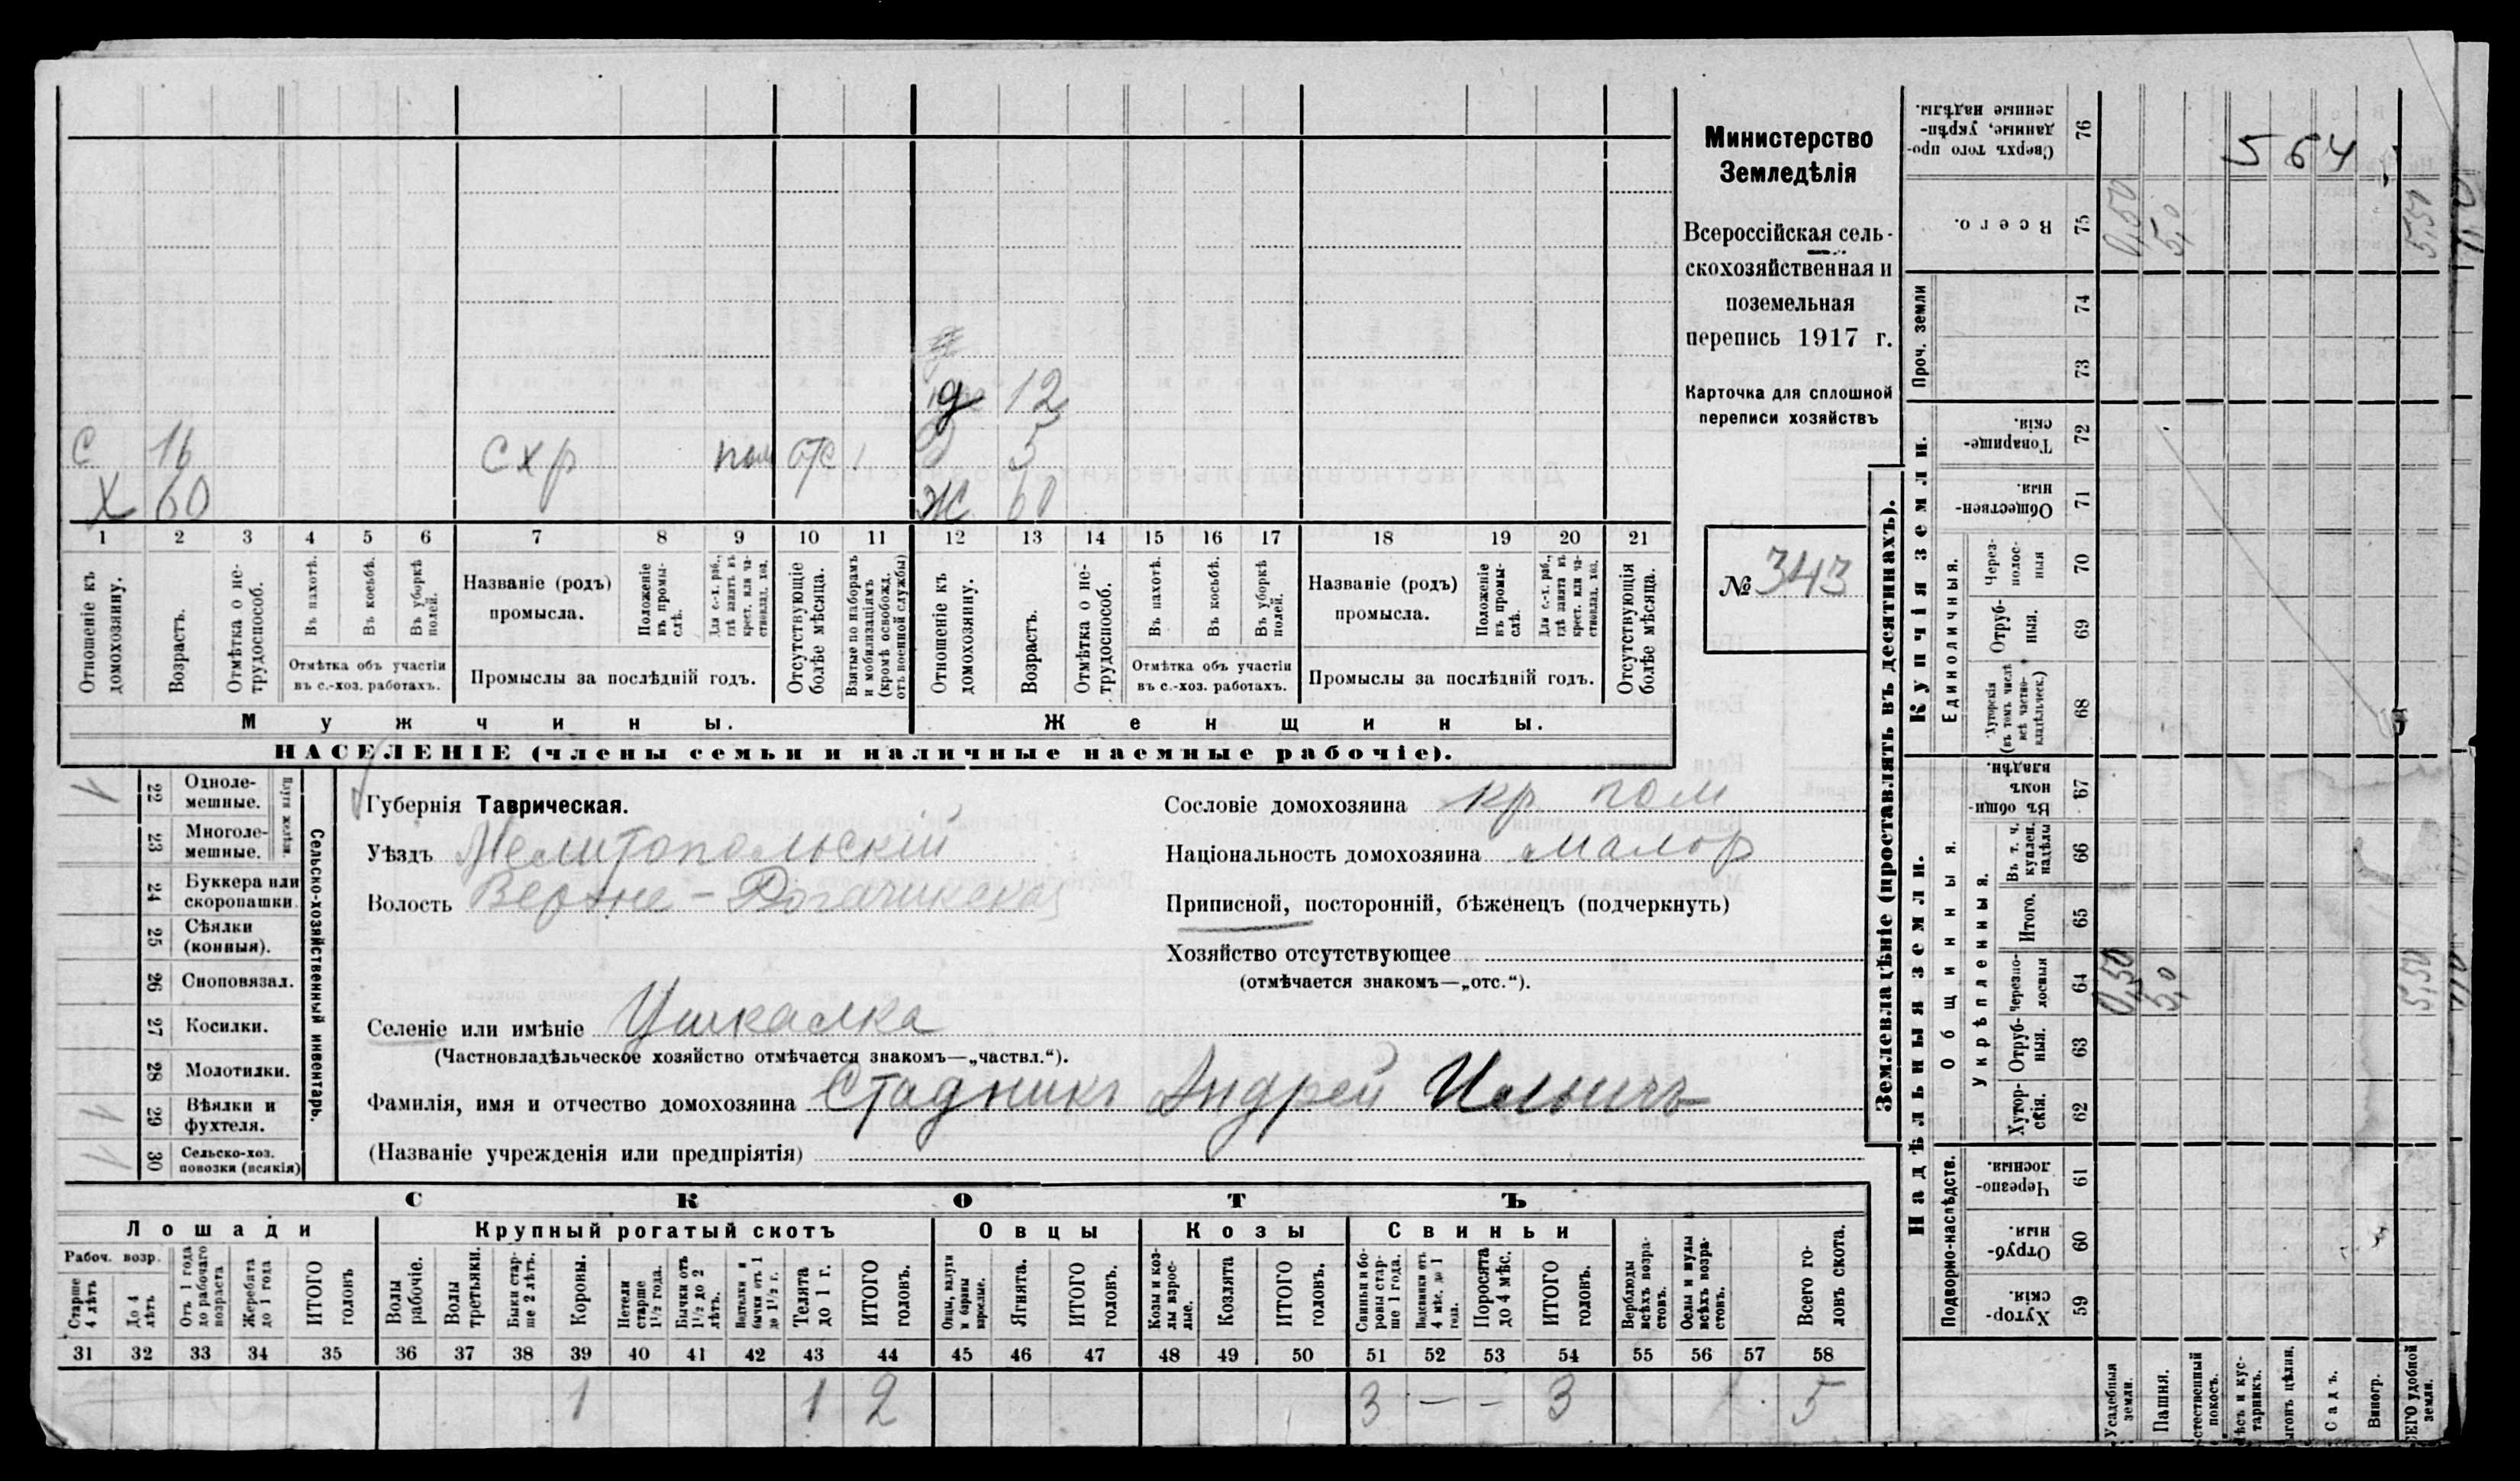 Министерство
Земледѣлія
Всероссійская сель-
скохозяйственная и
поземельная
перепись 1917 г.
Карточка для сплошной
переписи хозяйствъ
№ 343
564
д 12
С 16 схр пом отс 1 5
Х 60 Ж 60
1 2 3 4 5 6 7 8 9 10 11 12 13 14 15 16 17 18 19 20 21
Отношеніе къ домохозяину.
Возрастъ.
Отмѣтка о не-трудоспособ.
Въ пахотѣ.
Въ косьбѣ.
Въ уборкѣ полей.
Отмѣтка объ участіи
въ с.-хоз. работахъ.
Названіе (родъ)
промысла.
Положеніе въ промы-слѣ.
Для с.-х. раб., гдѣ занятъ въ крест. или ча-стновлад. хоз.
Промыслы за послѣдній годъ.
Отсутствующіе болѣе мѣсяца.
Взятые по наборамъ и мобилизаціямъ (кромѣ освобожд. отъ военной службы)
Отношеніе къ домохозяину.
Возрастъ.
Отмѣтка о не-трудоспособ.
Въ пахотѣ.
Въ косьбѣ.
Въ уборкѣ полей.
Отмѣтка объ участіи
въ с.-хоз. работахъ.
Названіе (родъ)
промысла.
Положеніе въ промы-слѣ.
Для с.-х. раб., гдѣ занятъ въ крест. или ча-стновлад. хоз.
Промыслы за послѣдній годъ.
Отсутствующія болѣе мѣсяца.
Мужчины. Женщины.
НАСЕЛЕНІЕ (члены семьи и наличные наемные рабочіе).
Сельско-хозяйственный инвентарь.
Плуги желѣзн.
22 Одноле-мешные.
23 Многоле-мешные.
24 Буккера или скоропашки
25 Сѣялки (конныя).
26 Сноповязал.
27 Косилки.
28 Молотилки.
29 Вѣялки и фухтеля.
30 Сельско-хоз. повозки (всякія)
Губернія Таврическая.
Уѣздъ Мелитопольскій
Волость Верхне-Рогачикская
Селеніе или имѣніе Ушкалка
(Частновладѣльческое хозяйство отмѣчается знакомъ—„частвл.“).
Фамилія, имя и отчество домохозяина Стадникъ Андрей Ильичъ
(Названіе учрежденія или предпріятія)
Сословіе домохозяина кр пом
Національность домохозяина малор
Приписной, посторонній, бѣженецъ (подчеркнуть)
Хозяйство отсутствующее
(отмѣчается знакомъ—„отс.“).
СКОТЪ
Лошади Крупный рогатый скотъ Овцы Козы Свиньи
Рабоч. возр.
Старше 4 лѣтъ
До 4 лѣтъ
Отъ 1 года до рабочаго возраста
Жеребята до 1 года
ИТОГО головъ
Волы рабочіе.
Волы третьяки.
Быки стар-ше 2 лѣтъ.
Коровы.
Нетели старше 1½ года.
Бычки отъ 1½ до 2 лѣтъ.
бычки отъ 1 до 1½ г.
Телята до 1 г.
ИТОГО головъ.
Овцы, валухи и бараны взрослые.
Ягнята.
ИТОГО головъ.
Козы и коз-лы взрос-лые.
Козлята
ИТОГО головъ.
Свиньи и бо-ровы стар-ше 1 года.
Подсвинки отъ 4 мѣс. до 1 года.
Поросята до 4 мѣс.
ИТОГО головъ.
Верблюды всѣхъ возра-стовъ.
Ослы и мулы всѣхъ возра-стовъ.
Всего го-ловъ скота.
31 32 33 34 35 36 37 38 39 40 41 42 43 44 45 46 47 48 49 50 51 52 53 54 55 56 57 58
1 1 2 3 — — 3 5
Землевладѣніе (проставлять въ десятинахъ).
Надѣльныя земли. Купчія земли. Проч. земли
Подворно-наслѣдств.
Общинныя.
Укрѣпленныя.
Единоличныя.
76 Сверхъ того про-данные, укрѣп-ленные надѣлы.
75 Всего. 0,50 5,0 5,50
74
73
72 Товарище-скія.
71 Обществен-ныя.
70 Через-полос-ныя
69 Отруб-ныя.
68 Хуторскія (въ томъ числѣ всѣ частно-владѣльческ.)
67 Въ общин-номъ владѣн.
66 Въ т. ч. куплен. надѣлы
65 Итого.
64 Черезпо-лосныя 0,50 5,0 5,50
63 Отруб-ныя.
62 Хутор-скія.
61 Черезпо-лосныя.
60 Отруб-ныя.
59 Хутор-скія.
Усадебныя земли.
Пашня.
стественный покосъ.
ѣсъ и кус-тарникъ.
ыгонъ цѣлин.
Садъ.
Виногр.
СЕГО удобной земли.